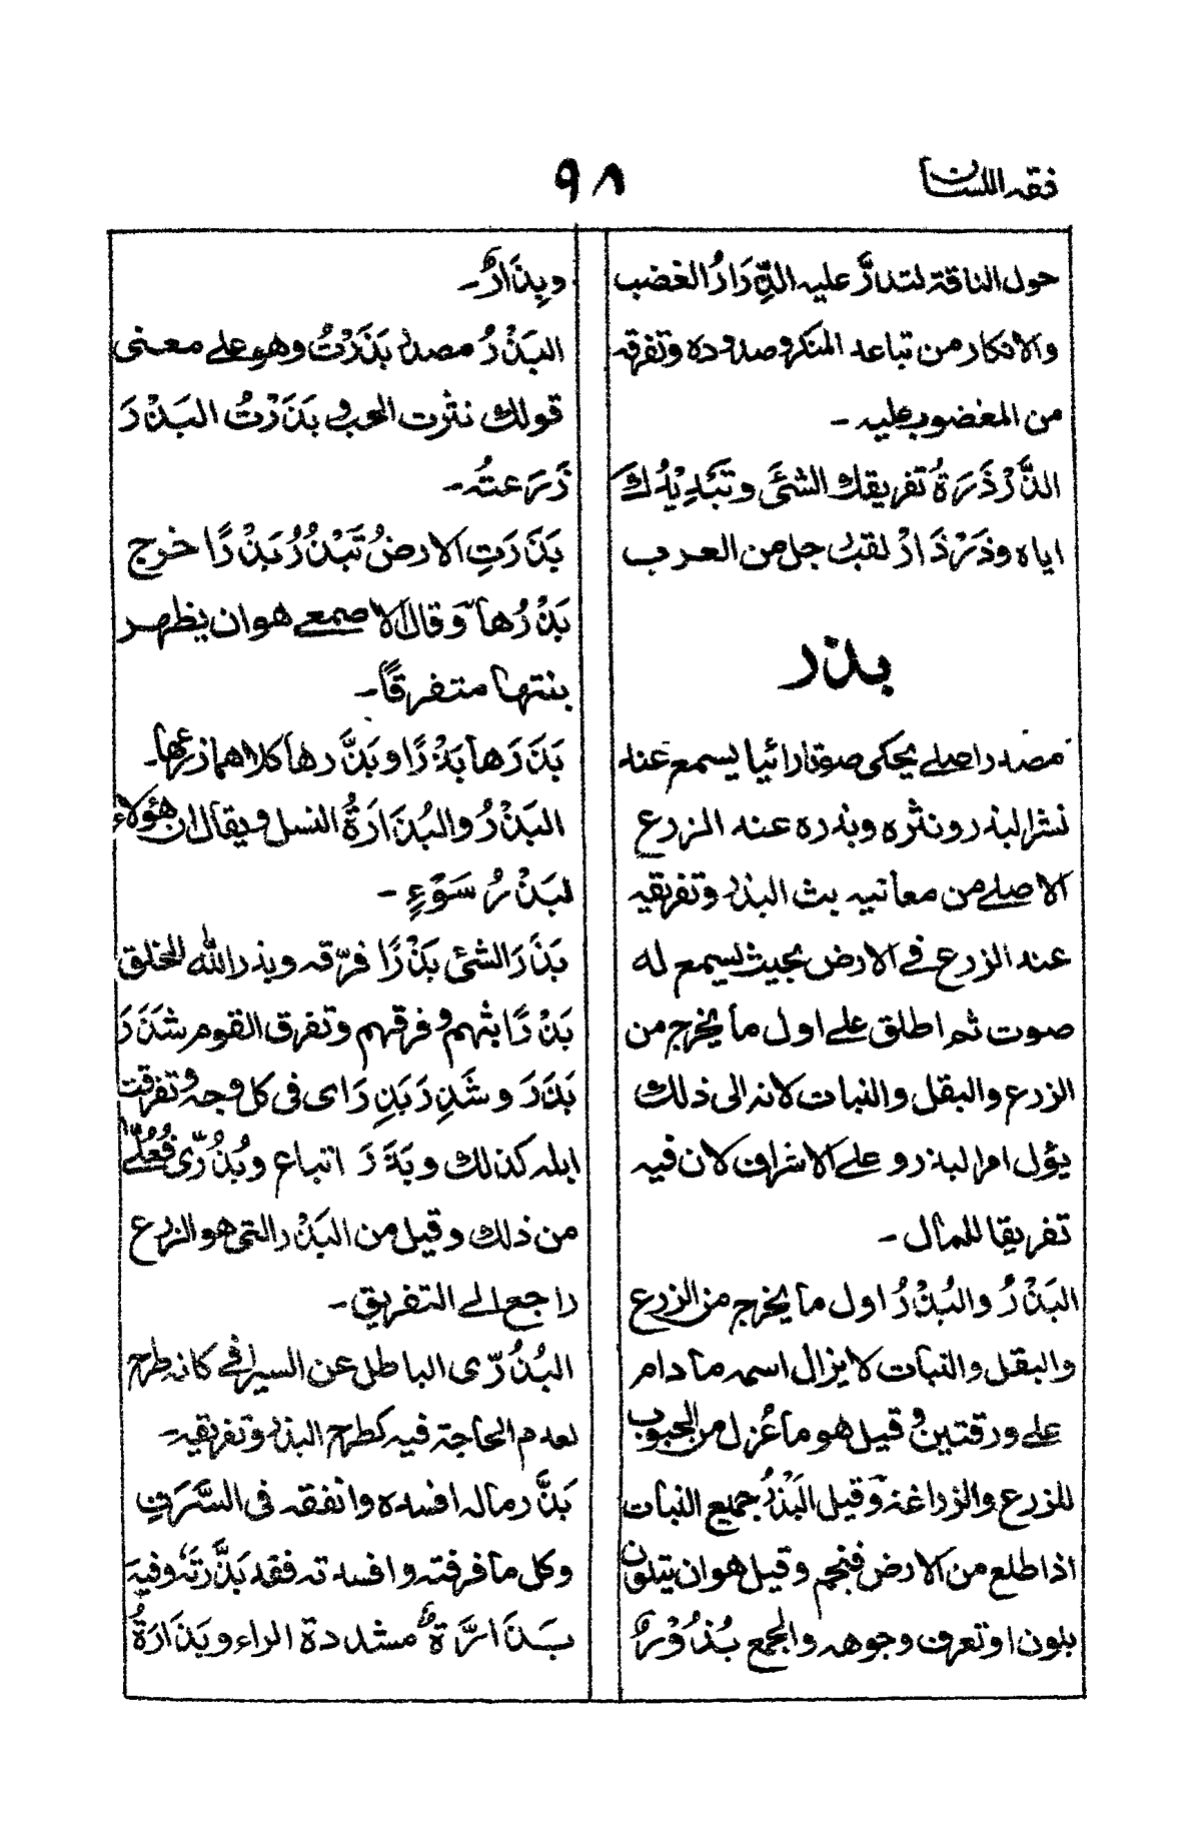 فقه اللسان
٩٨
حول الناقة لتدارَّ عليه الذِّرَارُ الغضب
والانكار من تباعد المنكر وصدوده وتفرقه
من المغضوب عليه -
الذَّرْذَرَةُ تفريقك الشئَ وتَبْدِيْدُكَ
اياه وذَرْذَارْ لقب رجل من العرب
بذر
مصدر اصلے يحكى صوتا رائيا يسمع عند
نشر البذر ونثره وبذره عند الزرع
الاصلے من معانيه بث البذر وتفريقه
عند الزرع فے الارض بحيث يسمع له
صوت ثم اطلق علے اول ما يخرج من
الزرع والبقل والنبات لانه الى ذلك
يؤل امر البذر و علے الاسراف لان فيه
تفريقا للمال -
البَذْرُ والبُذْرُ اول ما يخرج من الزرع
والبقل والنبات لا يزال اسمه ما دام
علے ورقتين وقيل هو ما عُزل من الحبوب
للزرع والزراعة وقيل البَذْرُ جميع النبات
اذا طلع من الارض فنجم وقيل هو ان يتلون
بلون او تعرف وجوهه والجمع بُذُوْرٌ
وبِذَارٌ -
البَذْرُ مصدر بَذَرْتُ وهو علے معنى
قولك نثرت الحب و بَذَرْتُ البَذْرَ
ذَرَعتُه -
بَذَرَتِ الارضُ تَبْذُرُ بَذْرًا خرج
بَذْرُها وقال الاصمعے هو ان يظهر
بنتها متفرقًا -
بَذَرَها بَذْرًا وبَذَّرها كلاهما زرعها -
البَذْرُ والبُذَارَةُ النسل ويقال ان هؤلاء
لبَذْرُ سَوْءٍ -
بَذَرَ الشئ بَذْرًا فرّقه وبذر الله الخلق
بَذْرًا بثهم وفرقهم وتفرق القوم شَذَرَ
بَذَرَ و شَذِرَ بَذِرَ اى فى كل وجه وتفرقت
ابله كذلك وبَذَرَ اتباع وبُذُرّى فُعُلّے
من ذلك وقيل من البَذْر التى هو الزرع
راجع الے التفريق -
البُذُرّى الباطل عن السيرافے كانه طرح
لعدم الحاجة فيه كطرح البذر وتفريقه -
بَذَّر ماله افسده وانفقه فى السَّرَفِ
وكل ما فرقته وافسدته فقد بَذَّرتَه وفيه
بَذَارَّةٌ مشددة الراء وبَذَارَةٌ